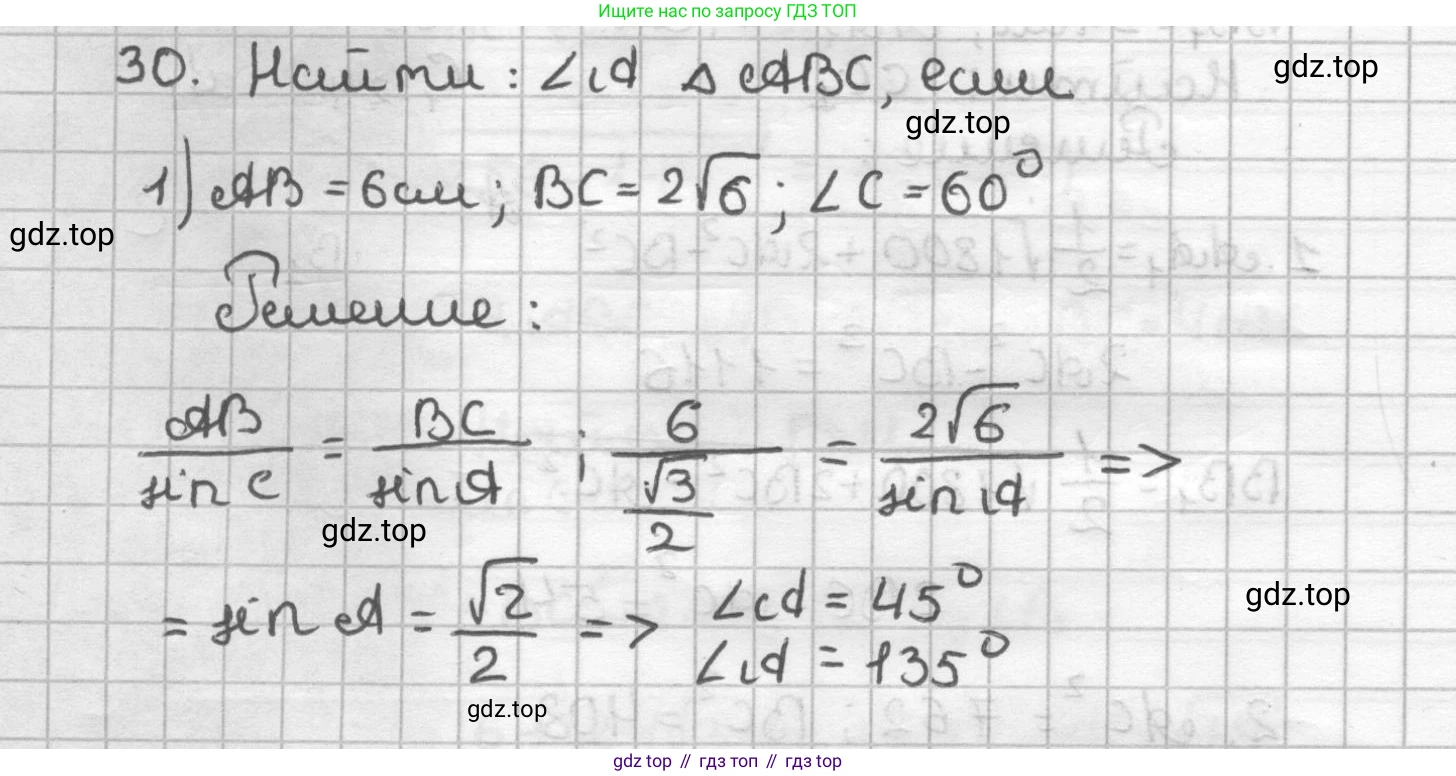 Ищите нас по запросу ГДЗ ТОП
30. Найти: ∠A △ ABC, если
gdz.top
gdz.top
1) AB = 6см; BC = 2√6; ∠C = 60°
gdz.top
Решение:
AB/sin C = BC/sin A ; 6/(√3/2) = 2√6/sin A =>
gdz.top
= sin A = √2/2 => ∠A = 45°
∠A = 135°
gdz.top
gdz.top
gdz top // гдз топ // gdz top